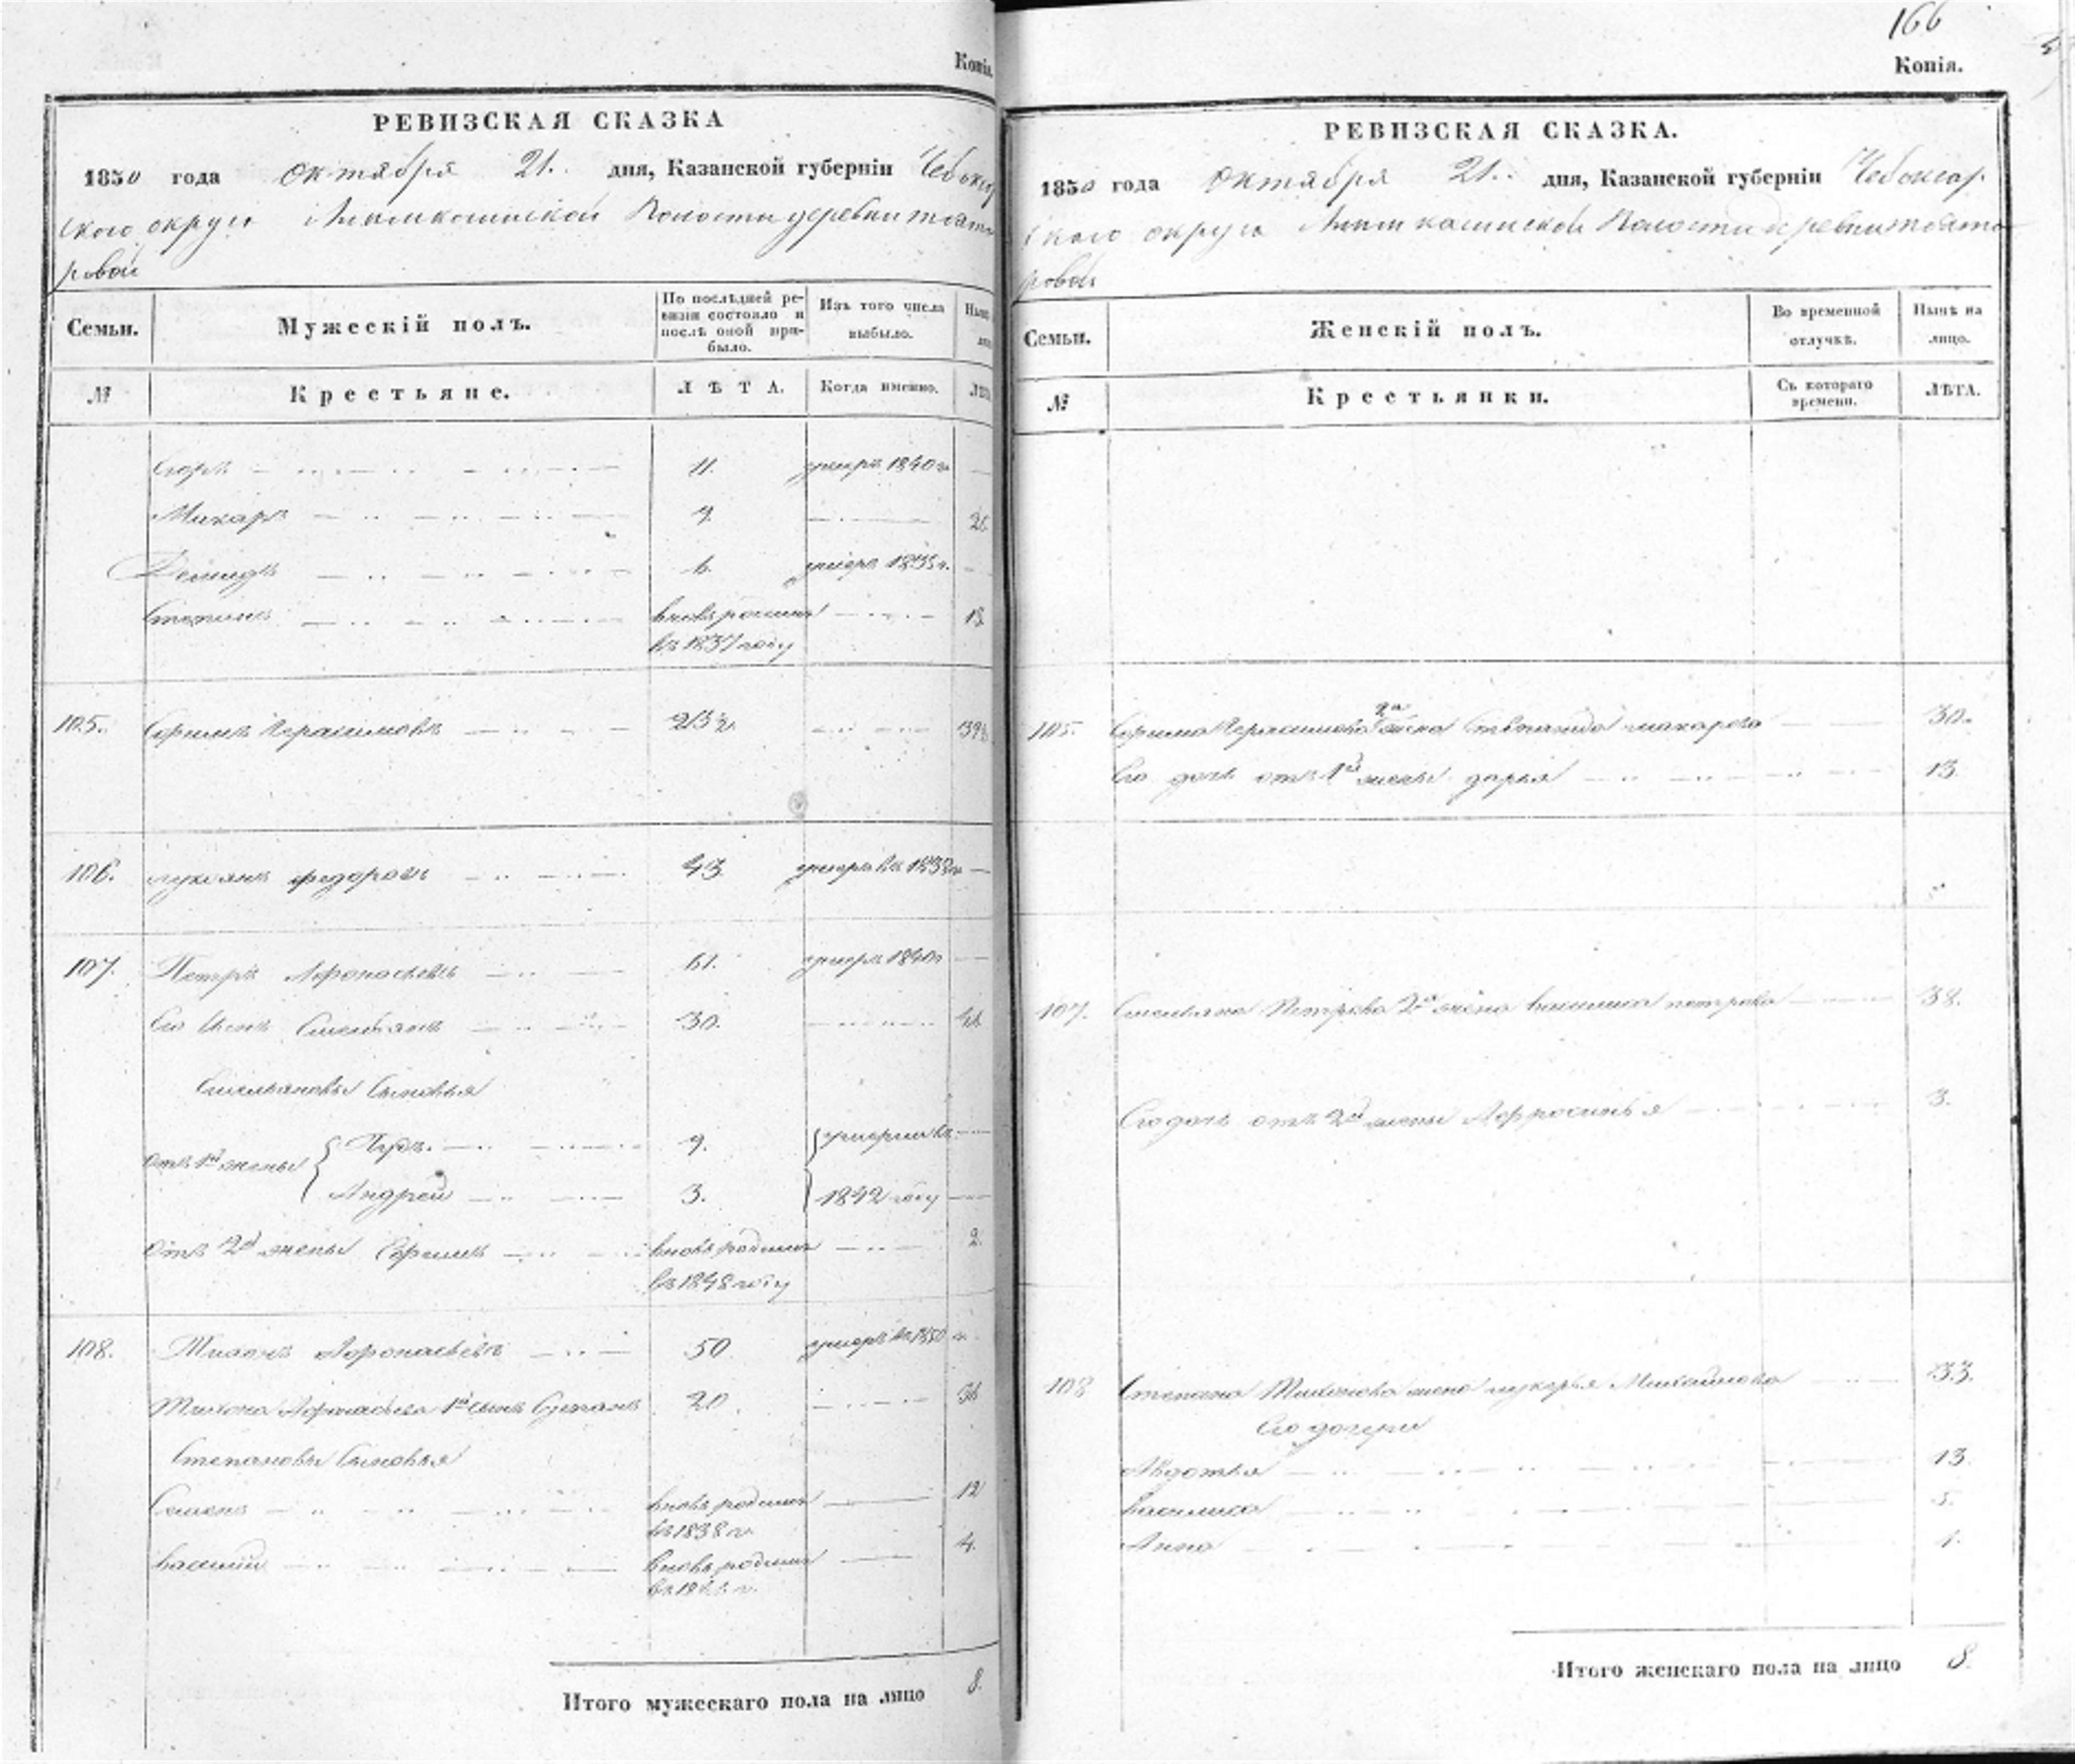 Копія.
РЕВИЗСКАЯ СКАЗКА
1850 года октября 21. дня, Казанской губерніи Чебоксар
скаго округа Волости деревни
ровой
Семьи.
Мужескій полъ.
По послѣдней ре-
визіи состояло и
послѣ оной при-
было.
Изъ того числа
выбыло.
№
Крестьяне.
ЛѢТА.
Когда именно.
Егоръ 11. умеръ 1840 г.
Макаръ 9.
6. умеръ
Степанъ вновь рожденъ 13
въ 1837 году
105. Ефимъ Герасимовъ 23½ 39½
106. лукіянъ федоровъ 43 умеръ въ
107. Петръ Афонасьевъ 61. умеръ 1840
Его сынъ Емельянъ 30.
Емельяновы Сыновья
отъ 1й жены 9. умерли въ
Андрей 3. 1842 году
Отъ 2й жены Ефимъ вновь рожденъ 2.
въ 1848 году
108. Тихонъ Афонасьевъ 50 умеръ въ 1850 г.
Тихона Афонасьева 1й сынъ Степанъ 20. 36
Степановы Сыновья
Семенъ вновь рожденъ 12
въ 1838 г.
василий вновь рожденъ 4.
Итого мужескаго пола на лицо 8.
166
Копія.
РЕВИЗСКАЯ СКАЗКА.
1850 года Октября 21. дня, Казанской губерніи Чебоксар
скаго округа Волости деревни
ровой
Семьи.
Женскій полъ.
Во временной
отлучкѣ.
Нынѣ на
лицо.
№
Крестьянки.
Съ котораго
времени.
ЛѢТА.
105. Ефима Герасимова 2я жена макарова 30.
Его дочь отъ 1й жены дарья 13
107. Емельяна Петрова 2я жена василиса петрова 38.
Его дочь отъ 2й жены Афросинья 3.
108 Степана Тихонова жена лукерья Михайлова 33.
Его дочери
Авдотья 13
василиса 5.
Анна 1.
Итого женскаго пола на лицо 8.